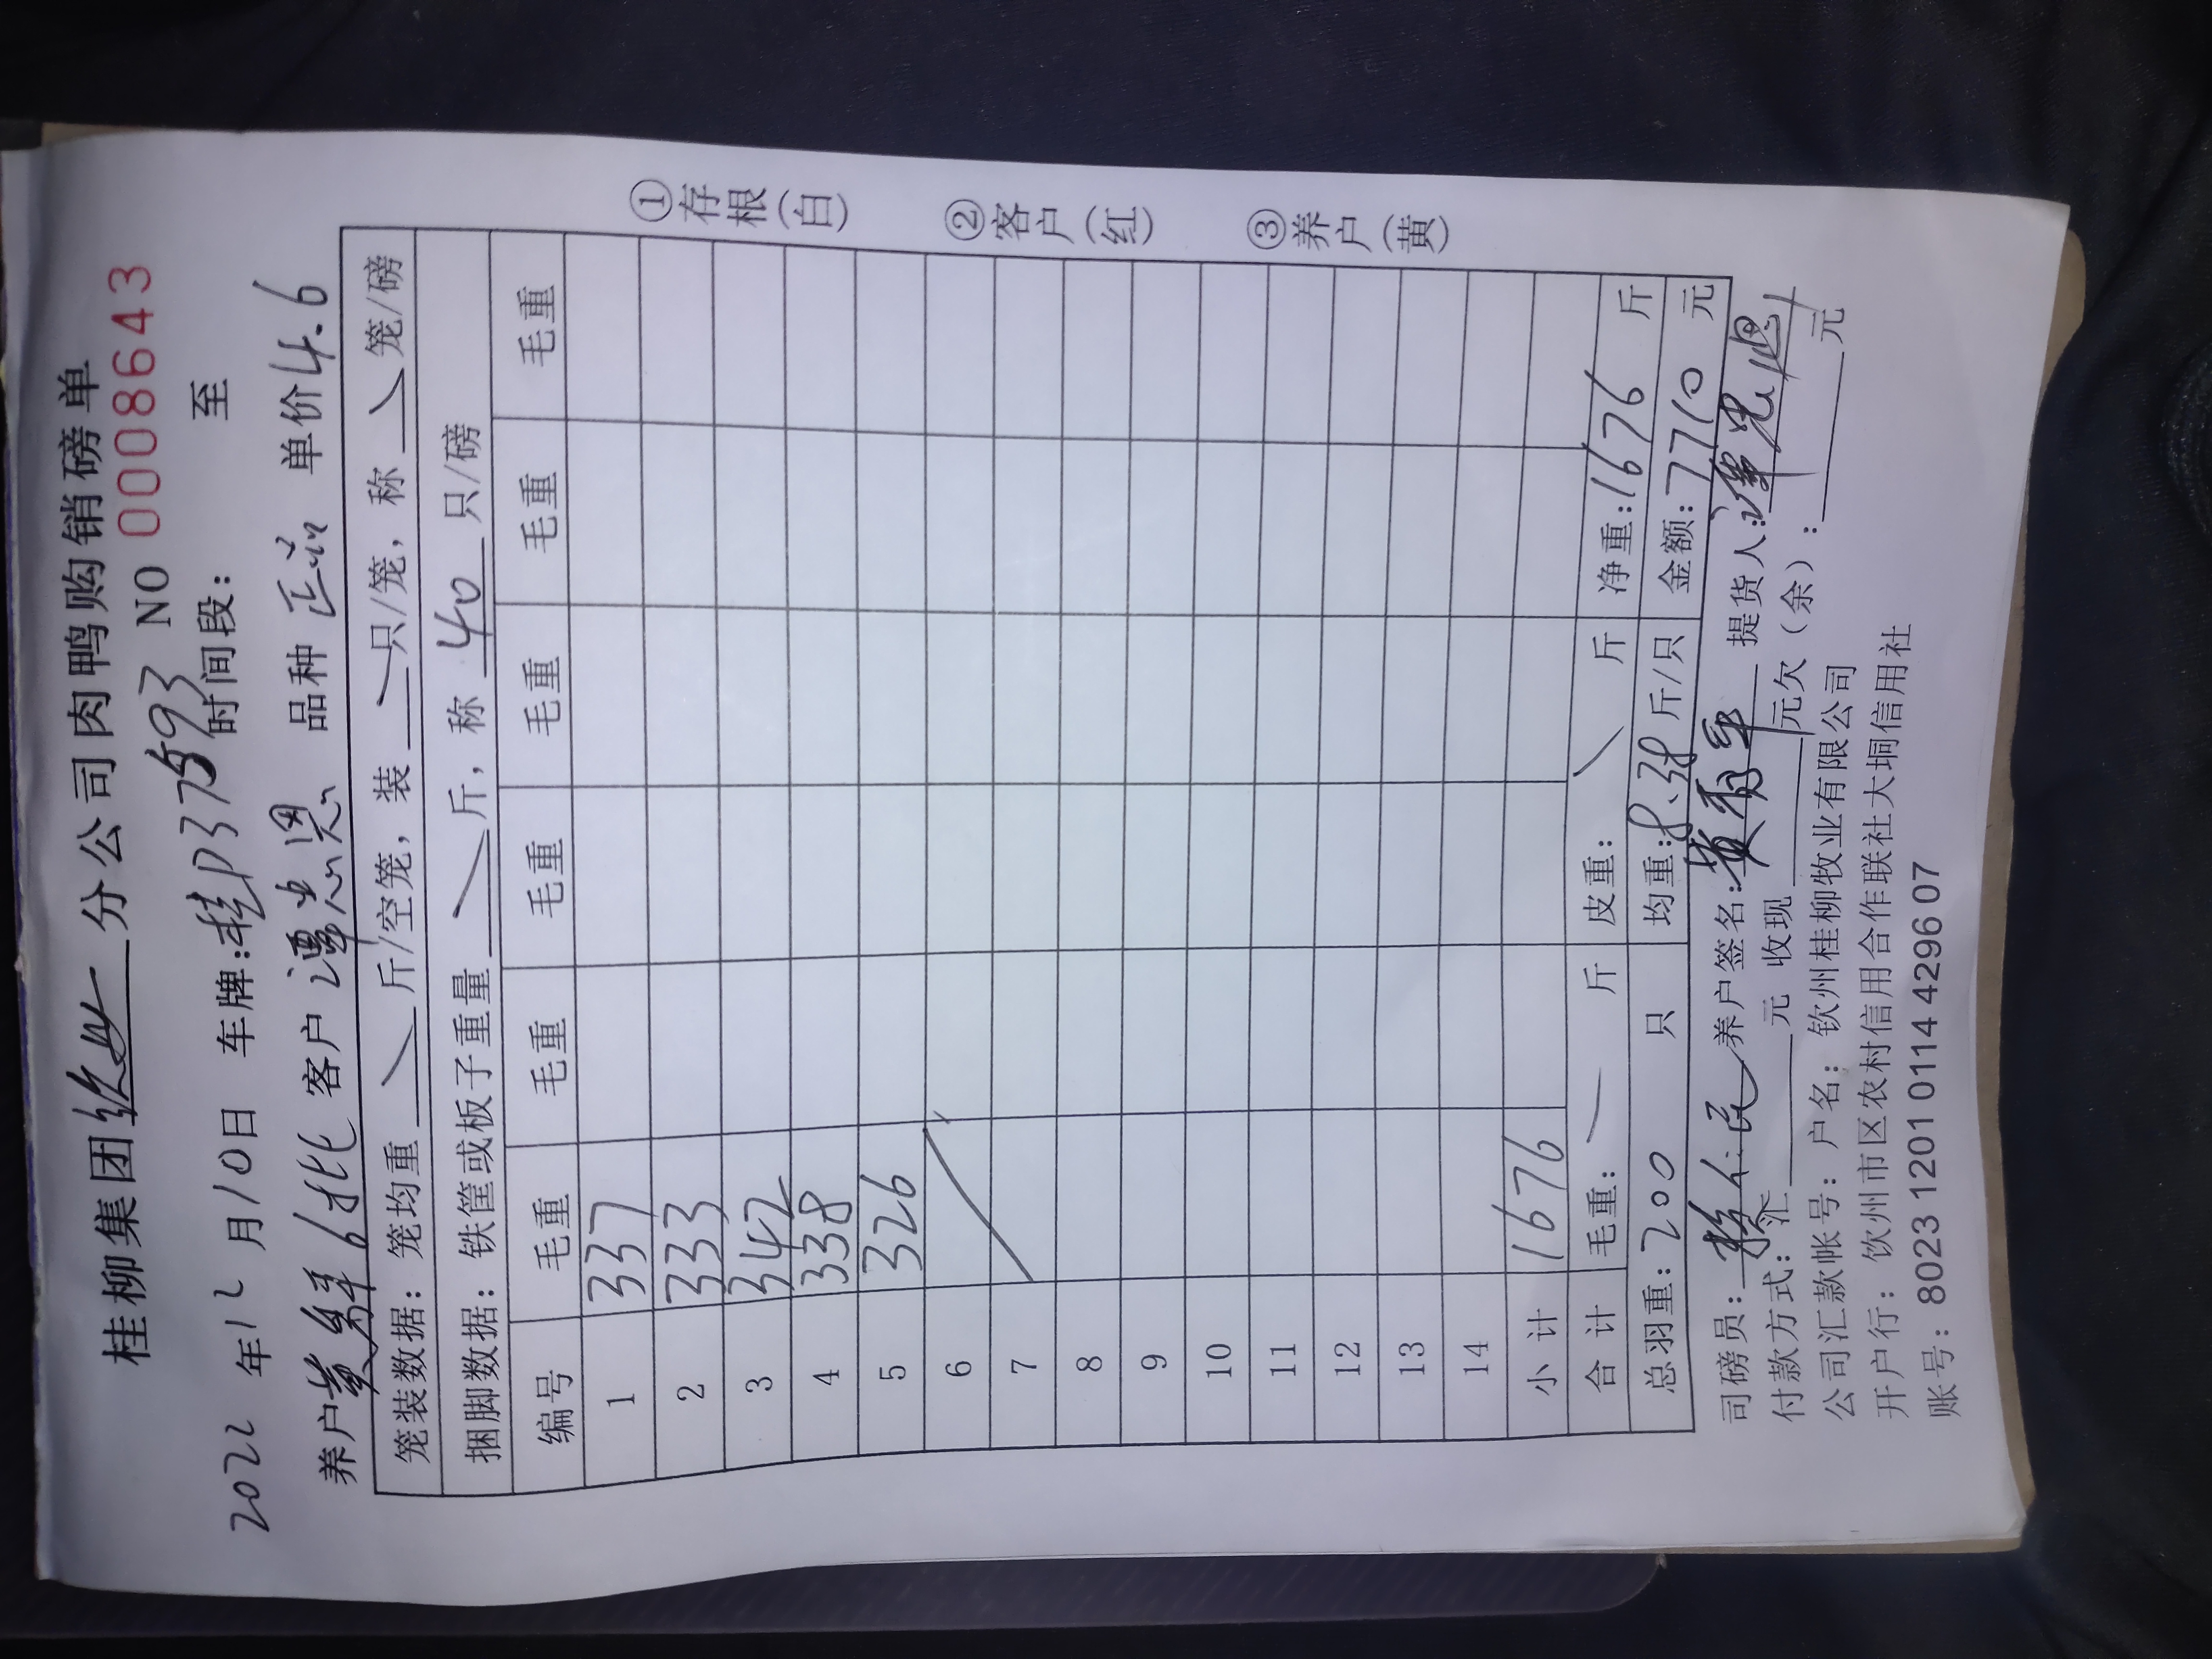 桂柳集团 分公司肉鸭购销磅单
NO 0008643
2022 年12月10日 车牌:桂D37593 时间段: 至
养户黄 6批 客户 谭忠恩 品种 正汕 单价4.6
笼装数据: 笼均重 斤/空笼, 装 只/笼, 称 笼/磅
捆脚数据: 铁筐或板子重量 斤, 称 40 只/磅
编号 毛重 毛重 毛重 毛重 毛重 毛重
1 337
2 333
3 342
4 338
5 326
6
7
8
9
10
11
12
13
14
小计 1676
合计 毛重: 斤 皮重: 斤 净重:1676 斤
总羽重:200 只 均重:8.38 斤/只 金额:7710 元
司磅员: 养户签名:黄 提货人:谭忠恩
付款方式: 汇 元 收现 元欠(余): 元
公司汇款帐号: 户名: 钦州桂柳牧业有限公司
开户行: 钦州市区农村信用合作联社大垌信用社
账号: 8023 1201 0114 4296 07
①存根(白)
②客户(红)
③养户(黄)